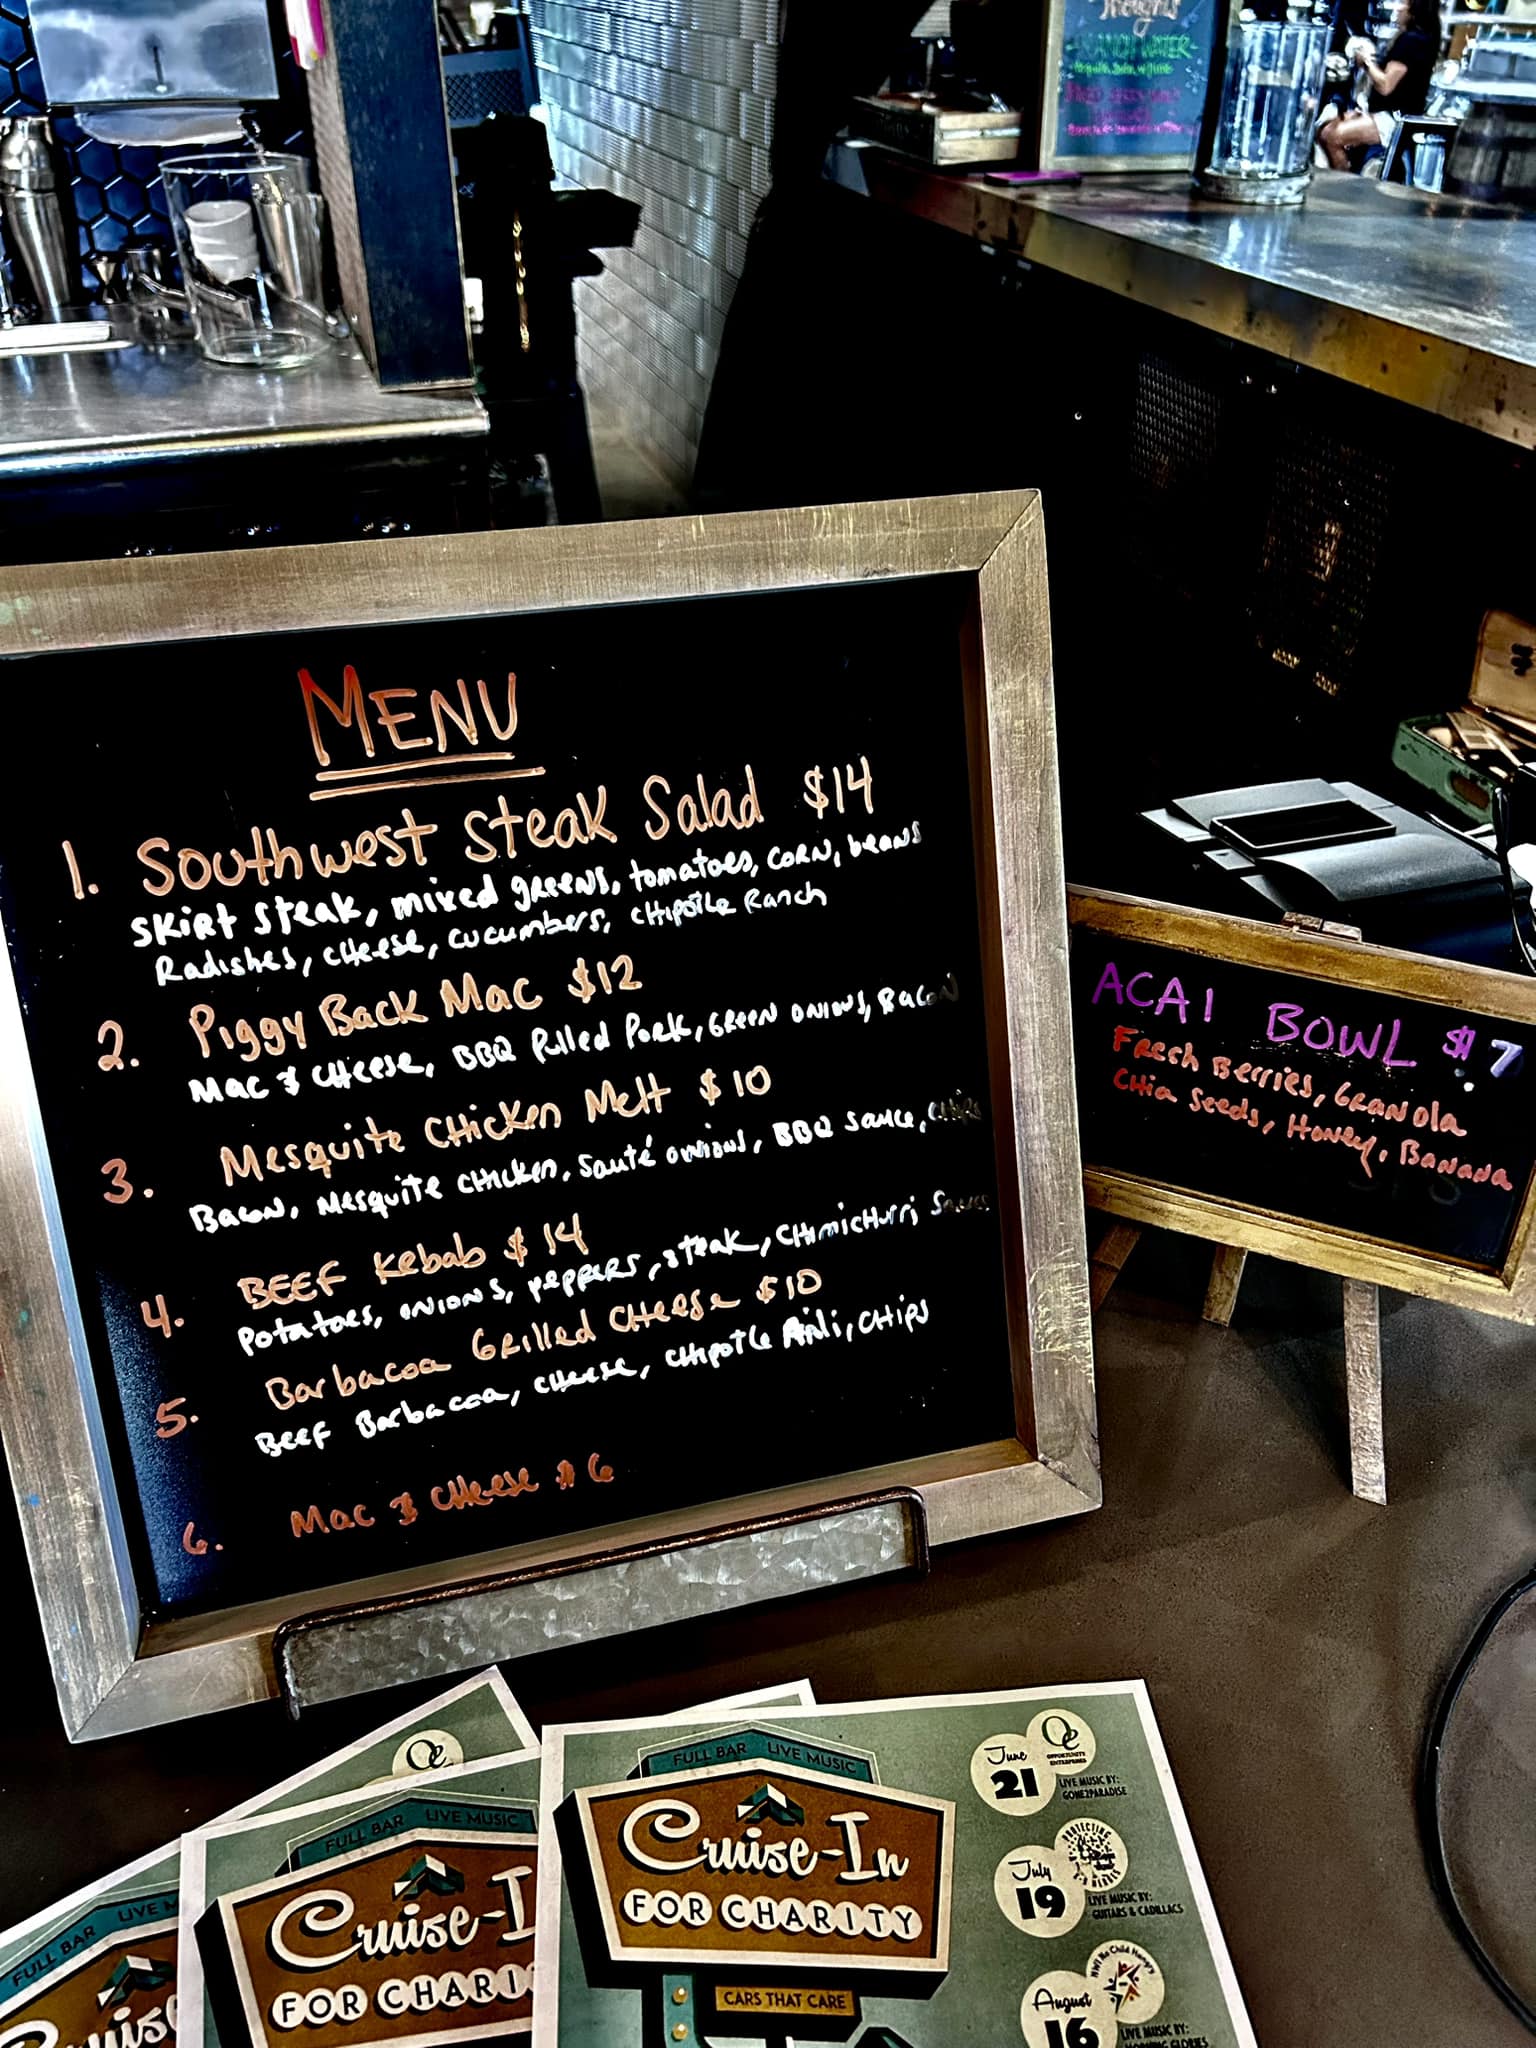 RANCH WATER
MENU
1. Southwest Steak Salad $14
Skirt Steak, mixed greens, tomatoes, corn, beans
Radishes, cheese, cucumbers, chipotle Ranch
2. Piggy Back Mac $12
Mac & Cheese, BBQ Pulled Pork, Green onions, Bacon
3. Mesquite Chicken Melt $10
Bacon, Mesquite chicken, Sauté onions, BBQ sauce, chips
4. BEEF Kebab $14
Potatoes, onions, peppers, steak, chimichurri Sauce
5. Barbacoa Grilled Cheese $10
Beef Barbacoa, cheese, chipotle Aioli, chips
6. Mac & Cheese $6
ACAI BOWL $7
Fresh Berries, Granola
Chia Seeds, Honey, Banana
FULL BAR LIVE MUSIC
Cruise-In
FOR CHARITY
CARS THAT CARE
June
21
Oe
OPPORTUNITY
ENTERPRISES
LIVE MUSIC BY:
GONE2PARADISE
July
19
PROTECTING
LIVE MUSIC BY:
GUITARS & CADILLACS
August
16
NWI No Child Hungry
LIVE MUSIC BY:
MORNING GLORIES
Oe
FULL BAR LIVE MUSIC
Cruise-I
FOR CHARI
FULL BAR LIVE M
Cruis
FOR